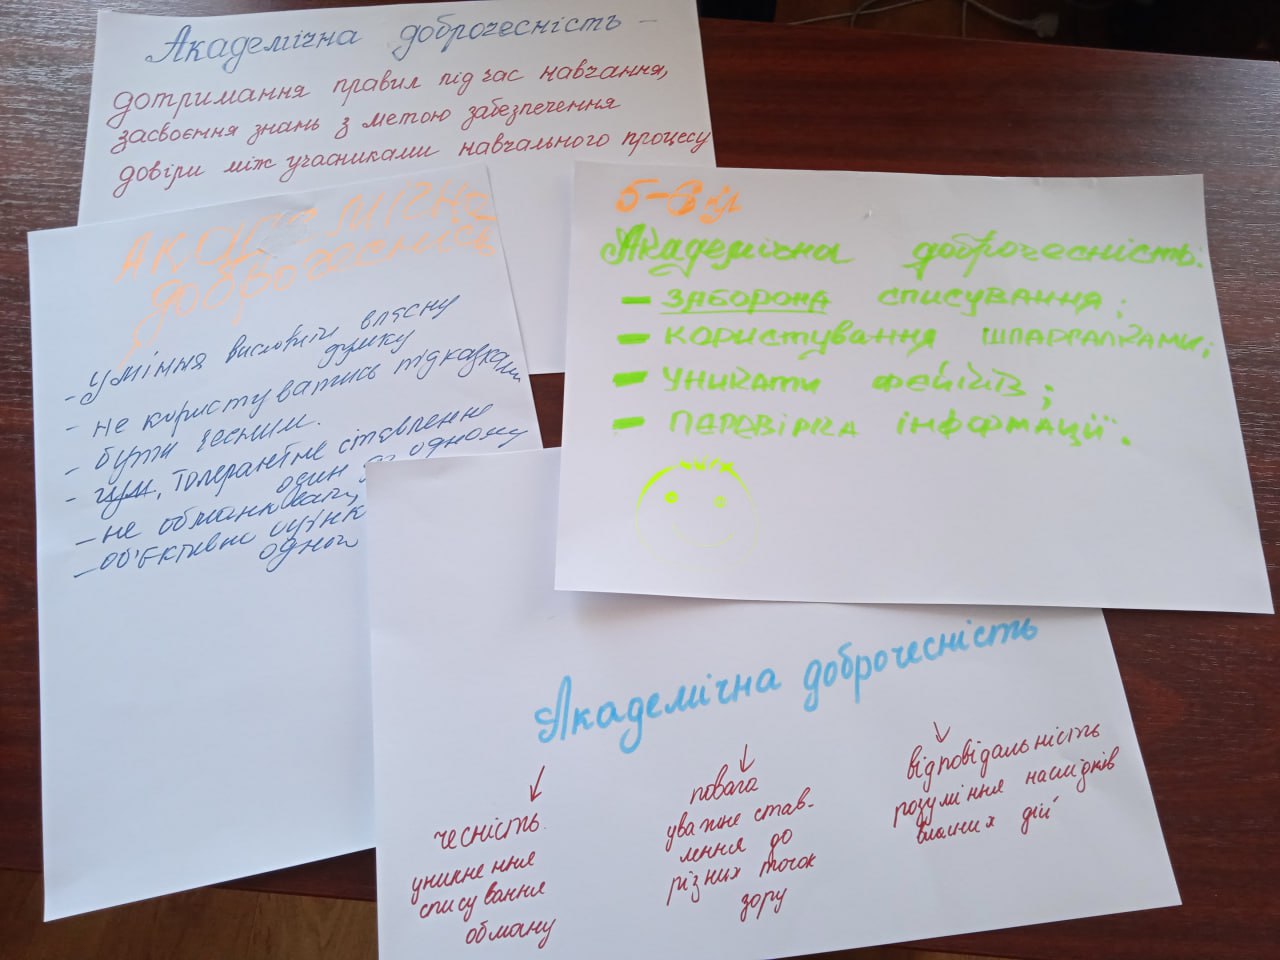 Академічна доброчесність –
дотримання правил під час навчання,
засвоєння знань з метою забезпечення
довіри між учасниками навчального процесу
АКАДЕМІЧНА
доброчесність
- уміння висловити власну
думку
- не користуватись підказками
- бути чесним.
- толерантне ставлення
один до одному
- не обманювати,
- об'єктивно оцінюв
одног
5-6 кл
Академічна доброчесність:
- ЗАБОРОНА списування;
- користування шпаргалками;
- УНИКАТИ фейків;
- ПЕРЕВІРКА інформації.
Академічна доброчесність
чесність.
уникнення
списування
обману
повага
уважне став-
лення до
різних точок
зору
відповідальність
розуміння наслідків
власних дій